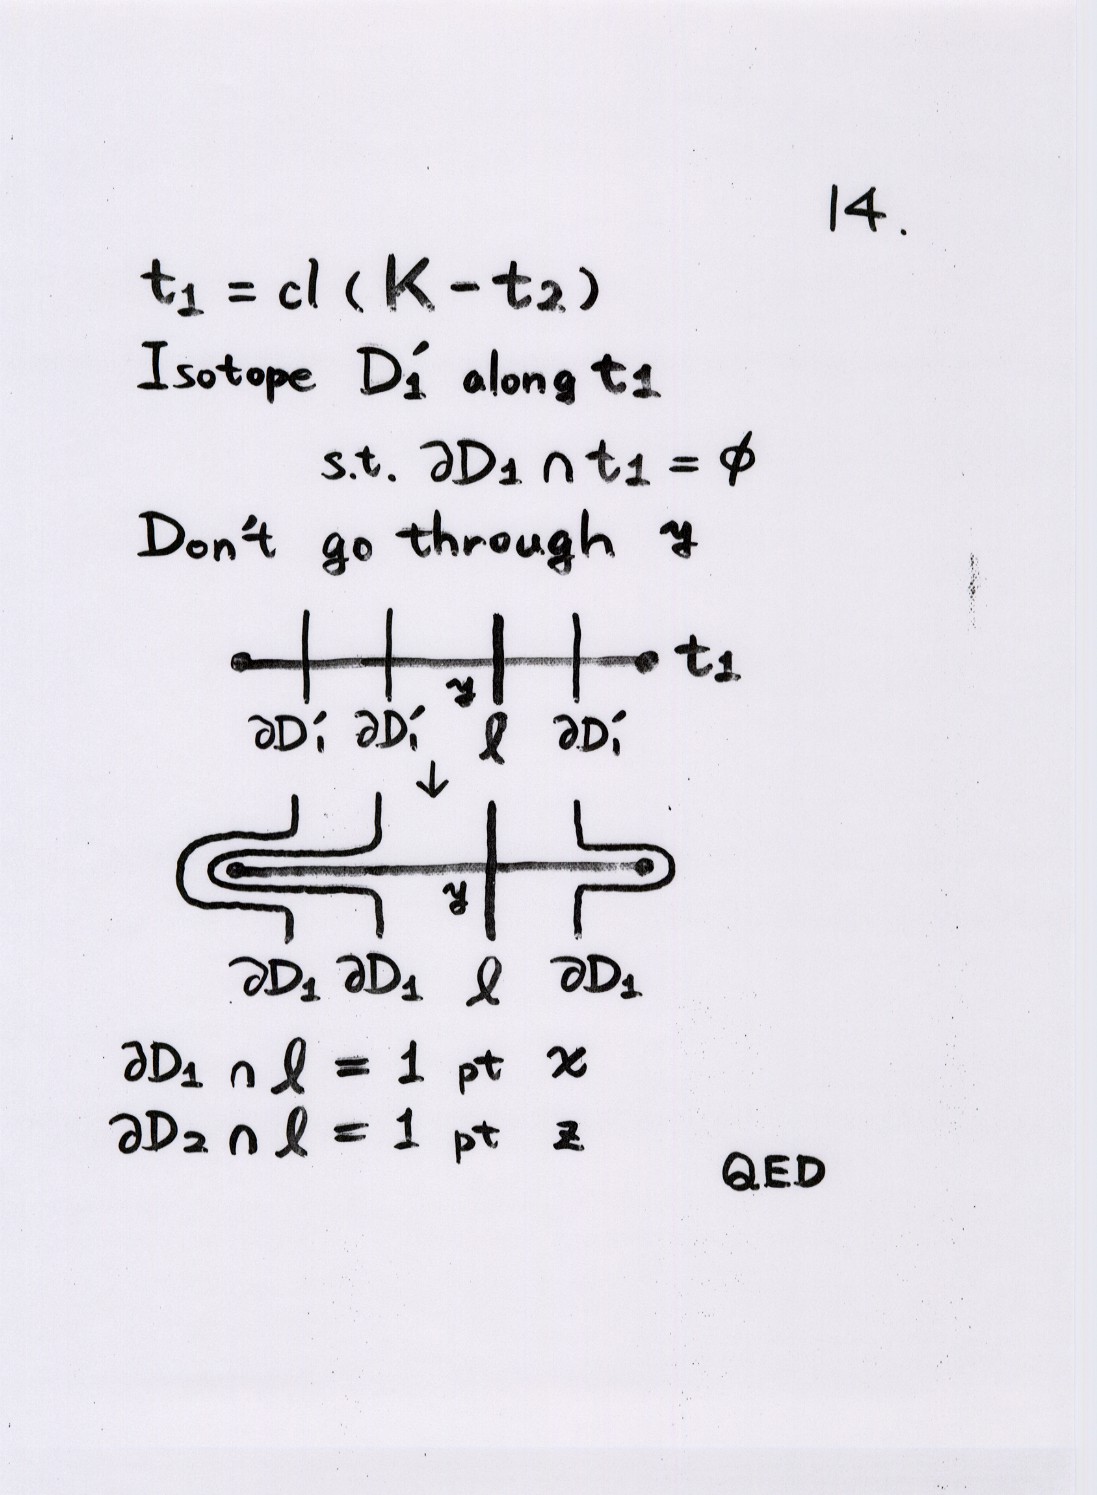 14.
t₁ = cl ( K - t₂ )
Isotope D₁′ along t₁
s.t. ∂D₁ ∩ t₁ = ϕ
Don't go through y
t₁
y
∂D₁′ ∂D₁′ ℓ ∂D₁′
↓
y
∂D₁ ∂D₁ ℓ ∂D₁
∂D₁ ∩ ℓ = 1 pt x
∂D₂ ∩ ℓ = 1 pt z
QED